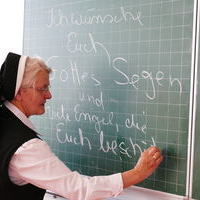 Ich wünsche
Euch
Gottes Segen
und
viele Engel, die
Euch beschü